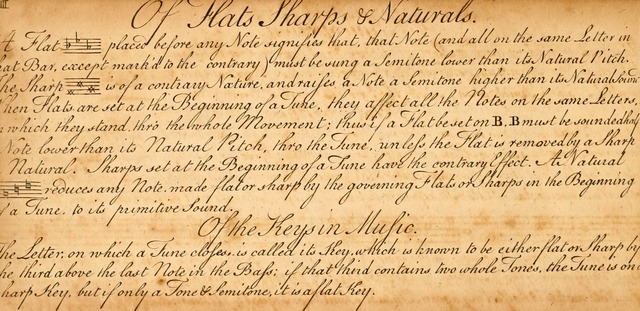 Of Flats Sharps & Naturals.
A Flat placed before any Note signifies that, that Note (and all on the same Letter in
that Bar, except mark'd to the contrary) must be sung a Semitone lower than its Natural Pitch.
The Sharp is of a contrary Nature, and raises a Note a Semitone higher than its Natural Sound
When Flats are set at the Beginning of a Tune, they affect all the Notes on the same Letters,
on which they stand, thro the whole Movement; thus if a Flat be set on B, B must be sounded half
Note lower than its Natural Pitch, thro the Tune, unless the Flat is removed by a Sharp
Natural. Sharps set at the Beginning of a Tune have the contrary Effect. A Natural
reduces any Note, made flat or sharp by the governing Flats or Sharps in the Beginning
of a Tune, to its primitive Sound.
Of the Keys in Music.
The Letter, on which a Tune closes, is called its Key, which is known to be either flat or Sharp by
the third above the last Note in the Bass; if that third contains two whole Tones, the Tune is on
sharp Key, but if only a Tone & Semitone, it is a flat Key.